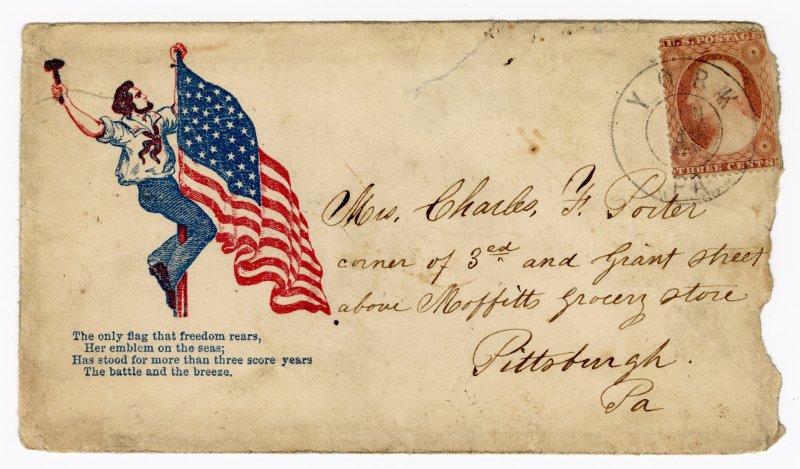 U.S. POSTAGE
THREE CENTS
YORK
PA
Mrs. Charles, F. Porter
corner of 3ed and Grant street
above Moffitts grocery store
Pittsburgh.
Pa
The only flag that freedom rears,
Her emblem on the seas;
Has stood for more than three score years
The battle and the breeze.